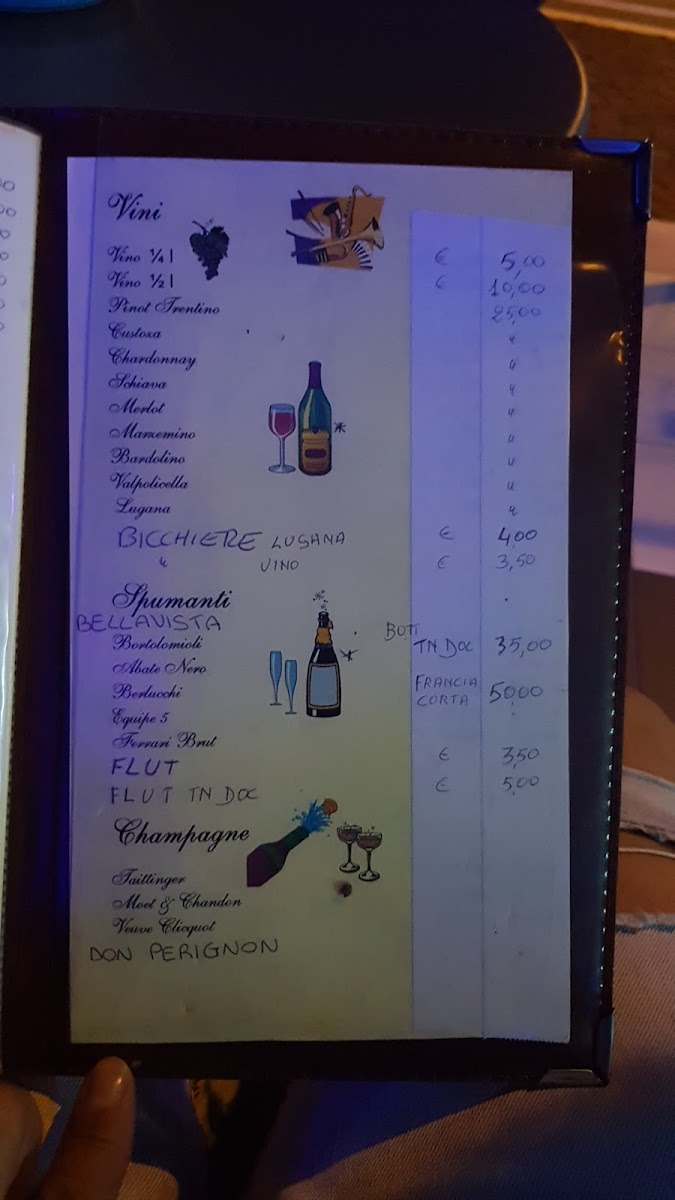 Vini
Vino ¼ l € 5,00
Vino ½ l € 10,00
Pinot Trentino 25,00
Custoza "
Chardonnay "
Schiava "
Merlot "
Marzemino "
Bardolino "
Valpolicella "
Lugana "
BICCHIERE LUGANA € 4,00
" VINO € 3,50
Spumanti
BELLAVISTA
BOTT
Bortolomioli TN DOC 35,00
Abate Nero
Berlucchi FRANCIA CORTA 50,00
Equipe 5
Ferrari Brut
FLUT € 3,50
FLUT TN DOC € 5,00
Champagne
Taittinger
Moet & Chandon
Veuve Clicquot
DON PERIGNON